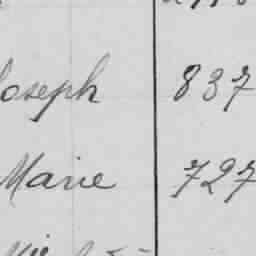 Joseph 837
Marie 727